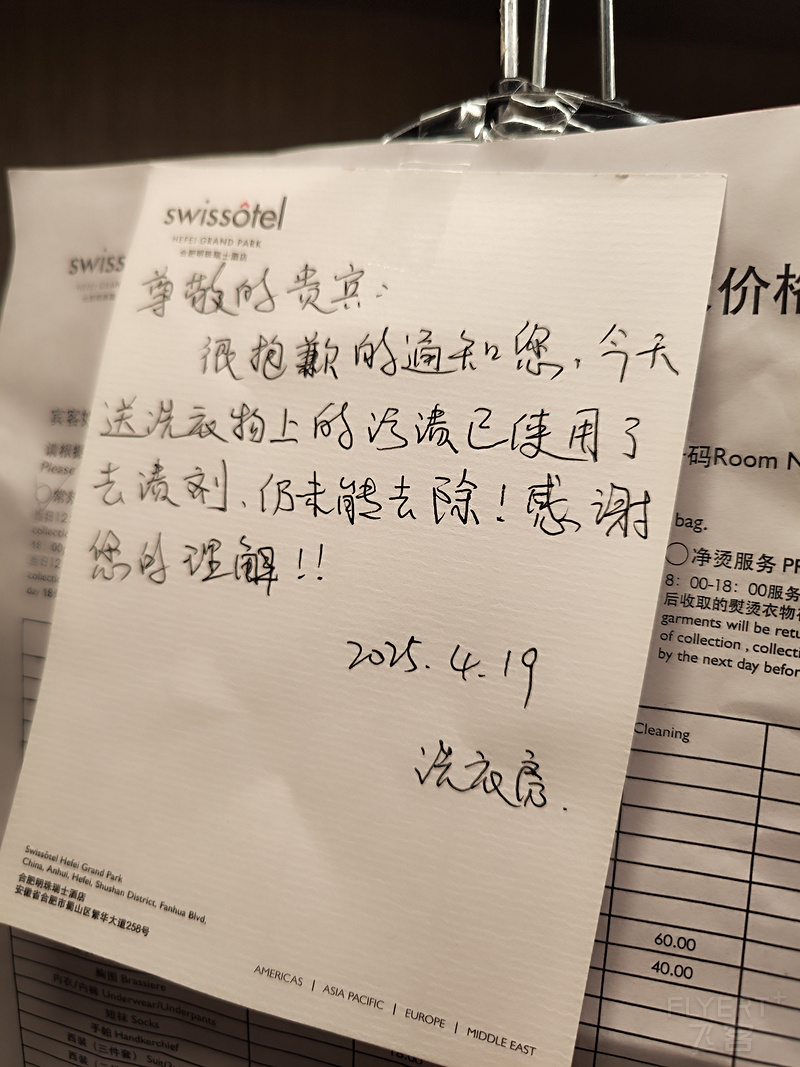 swissôtel
HEFEI GRAND PARK
合肥明珠瑞士酒店
尊敬的贵宾:
很抱歉的通知您,今天
送洗衣物上的污渍已使用了
去渍剂、仍未能去除!感谢
您的理解!!
2025.4.19
洗衣房.
Swissôtel Hefei Grand Park
China, Anhui, Hefei, Shushan District, Fanhua Blvd,
合肥明珠瑞士酒店
安徽省合肥市蜀山区繁华大道258号
AMERICAS | ASIA PACIFIC | EUROPE | MIDDLE EAST
swiss
宾客
请根据
Please
价格
码Room N
bag.
净烫服务 PR
8:00-18:00服务
后收取的熨烫衣物
garments will be retu
of collection , collecti
by the next day before
Cleaning
60.00
40.00
胸围 Brassiere
内衣/内裤 Underwear/Underpants
短袜 Socks
手帕 Handkerchief
西装(三件套) Suit/
FLYERT+
飞客